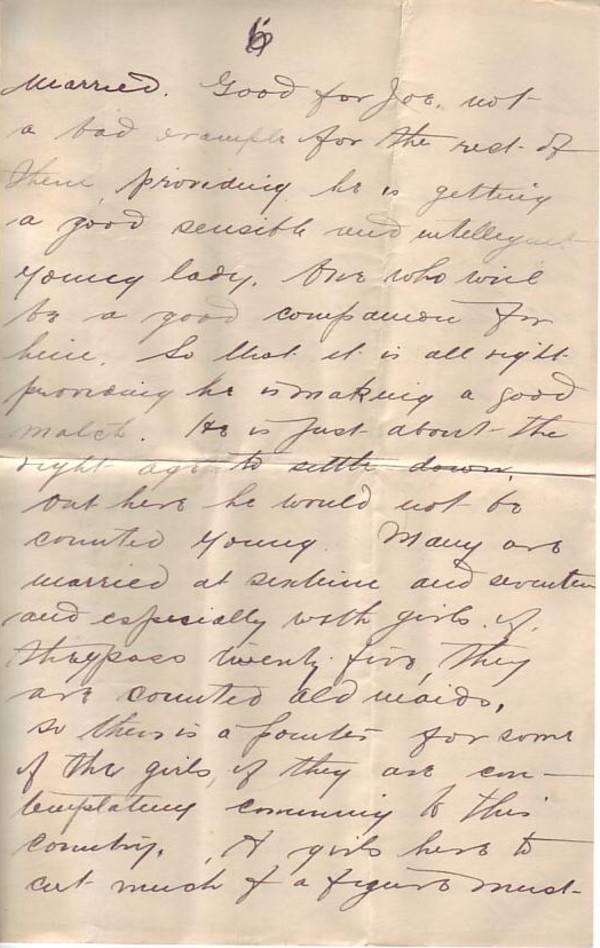 6
married. Good for Joe, not
a bad example for the rest of
them, providing he is getting
a good sensible and intellegent
young lady. One who will
be a good companion for
him. So that it is all right
providing he is making a good
match. He is just about the
right age to settle down,
out here he would not be
counted young. Many are
married at sixteine and seventen
and especially with girls. if
they pass twenty five, they
are counted old maids,
so there is a pointer for some
of the girls, if they are con-
templating comming to this
country. A girls here to
cut much of a figure must